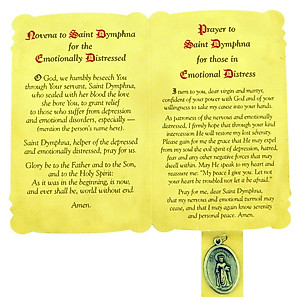 Novena to Saint Dymphna
for the
Emotionally Distressed
O God, we humbly beseech You
through Your servant, Saint Dymphna,
who sealed with her blood the love
she bore You, to grant relief
to those who suffer from depression
and emotional disorders, especially —
(mention the person's name here).
Saint Dymphna, helper of the depressed
and emotionally distressed, pray for us.
Glory be to the Father and to the Son,
and to the Holy Spirit:
As it was in the beginning, is now,
and ever shall be, world without end.
Amen.
Prayer to
Saint Dymphna
for those in
Emotional Distress
I turn to you, dear virgin and martyr,
confident of your power with God and of your
willingness to take my cause into your hands.
As patroness of the nervous and emotionally
distressed, I firmly hope that through your kind
intercession He will restore my lost serenity.
Please gain for me the grace that He may expel
from my soul the evil spirit of depression, hatred,
fear and any other negative forces that may
dwell within. May He speak to my heart and
reassure me: "My peace I give you. Let not
your heart be troubled nor let it be afraid."
Pray for me, dear Saint Dymphna,
that my nervous and emotional turmoil may
cease, and that I may again know serenity
and personal peace. Amen.